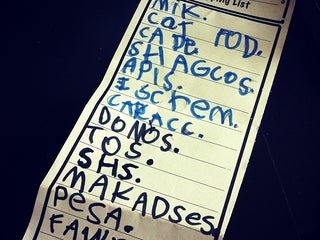 ping List
MIK.
Cat FOD.
CADE.
SHAGCOS.
APIS.
IScrem.
DONOS.
TOS.
SHS.
MAKADses
Pesa.